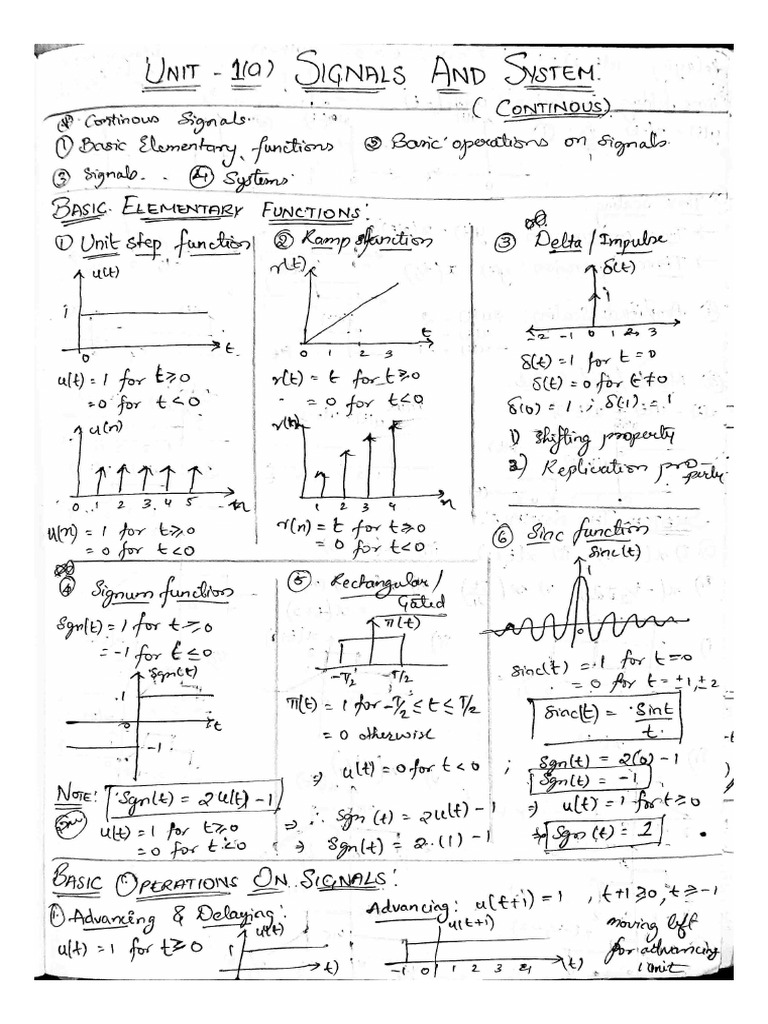 UNIT - 1(a) SIGNALS AND SYSTEM
(CONTINOUS)
Continous Signals.
① Basic Elementary functions ② Basic operations on signals
③ Signals. ④ Systems.
BASIC ELEMENTARY FUNCTIONS:
① Unit step function
u(t)
1
0
t
u(t) = 1 for t≥0
= 0 for t<0
u(n)
0 1 2 3 4 5 n
u(n) = 1 for t≥0
= 0 for t<0
② Ramp function
r(t)
t
0 1 2 3
r(t) = t for t≥0
= 0 for t<0
r(n)
1 2 3 4 n
r(n) = t for t≥0
= 0 for t<0
③ Delta / Impulse
δ(t)
1
-2 -1 0 1 2 3
δ(t) = 1 for t=0
δ(t) = 0 for t≠0
δ(0) = 1 ; δ(1) = 1
1) Shifting property
2) Replication property
④ Signum function
Sgn(t) = 1 for t≥0
= -1 for t≤0
Sgn(t)
1
0
t
-1
NOTE: Sgn(t) = 2u(t)-1
u(t) = 1 for t≥0
= 0 for t<0
⑤ Rectangular /
Gated
π(t)
-T/2 -T/2
π(t) = 1 for -T/2 ≤ t ≤ T/2
= 0 otherwise
⇒ u(t) = 0 for t<0 ;
⇒ ∴ Sgn(t) = 2u(t)-1
⇒ Sgn(t) = 2.(1)-1
⑥ Sinc function
sinc(t)
1
0
sinc(t) = 1 for t=0
= 0 for t=±1,±2
sinc(t) = sint/t
Sgn(t) = 2(0)-1
Sgn(t) = -1
⇒ u(t) = 1 for t≥0
⇒ Sgn(t) = 1
BASIC OPERATIONS ON SIGNALS:
1. Advancing & Delaying:
u(t) = 1 for t≥0
u(t)
1
t)
Advancing: u(t+1) = 1 , t+1≥0, t≥-1
u(t+1)
-1 0 1 2 3 4 t)
moving left
for advancing
1 unit